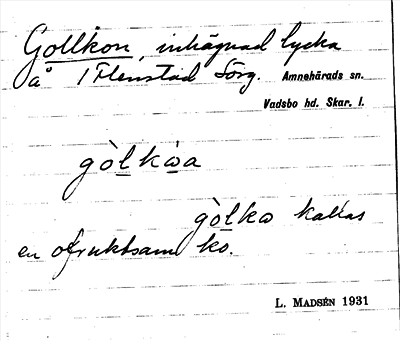 Gollkon, inhägnad lycka
å 1 Flenstad Sörg. Amnehärads sn.
Vadsbo hd. Skar. l.
gòlkwa
gòlkω kallas
en ofruktsam ko.
L. MADSÉN 1931